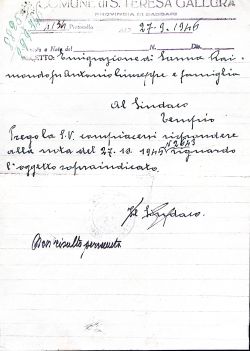 COMUNE di S. TERESA GALLURA
PROVINCIA DI SASSARI
1134 Protocollo 27-9-1946
Risposta a Nota del N. Div.
OGGETTO: Emigrazione di Sanna Rai-
mondo fu Antonio Giuseppe e famiglia
Al Sindaco
Tempio
Prego la S.V. compiacersi rispondere
alla nota del 27.10.1945 N 2643 riguardo
l'oggetto sopraindicato.
Il Sindaco.
Non risulta pervenuta